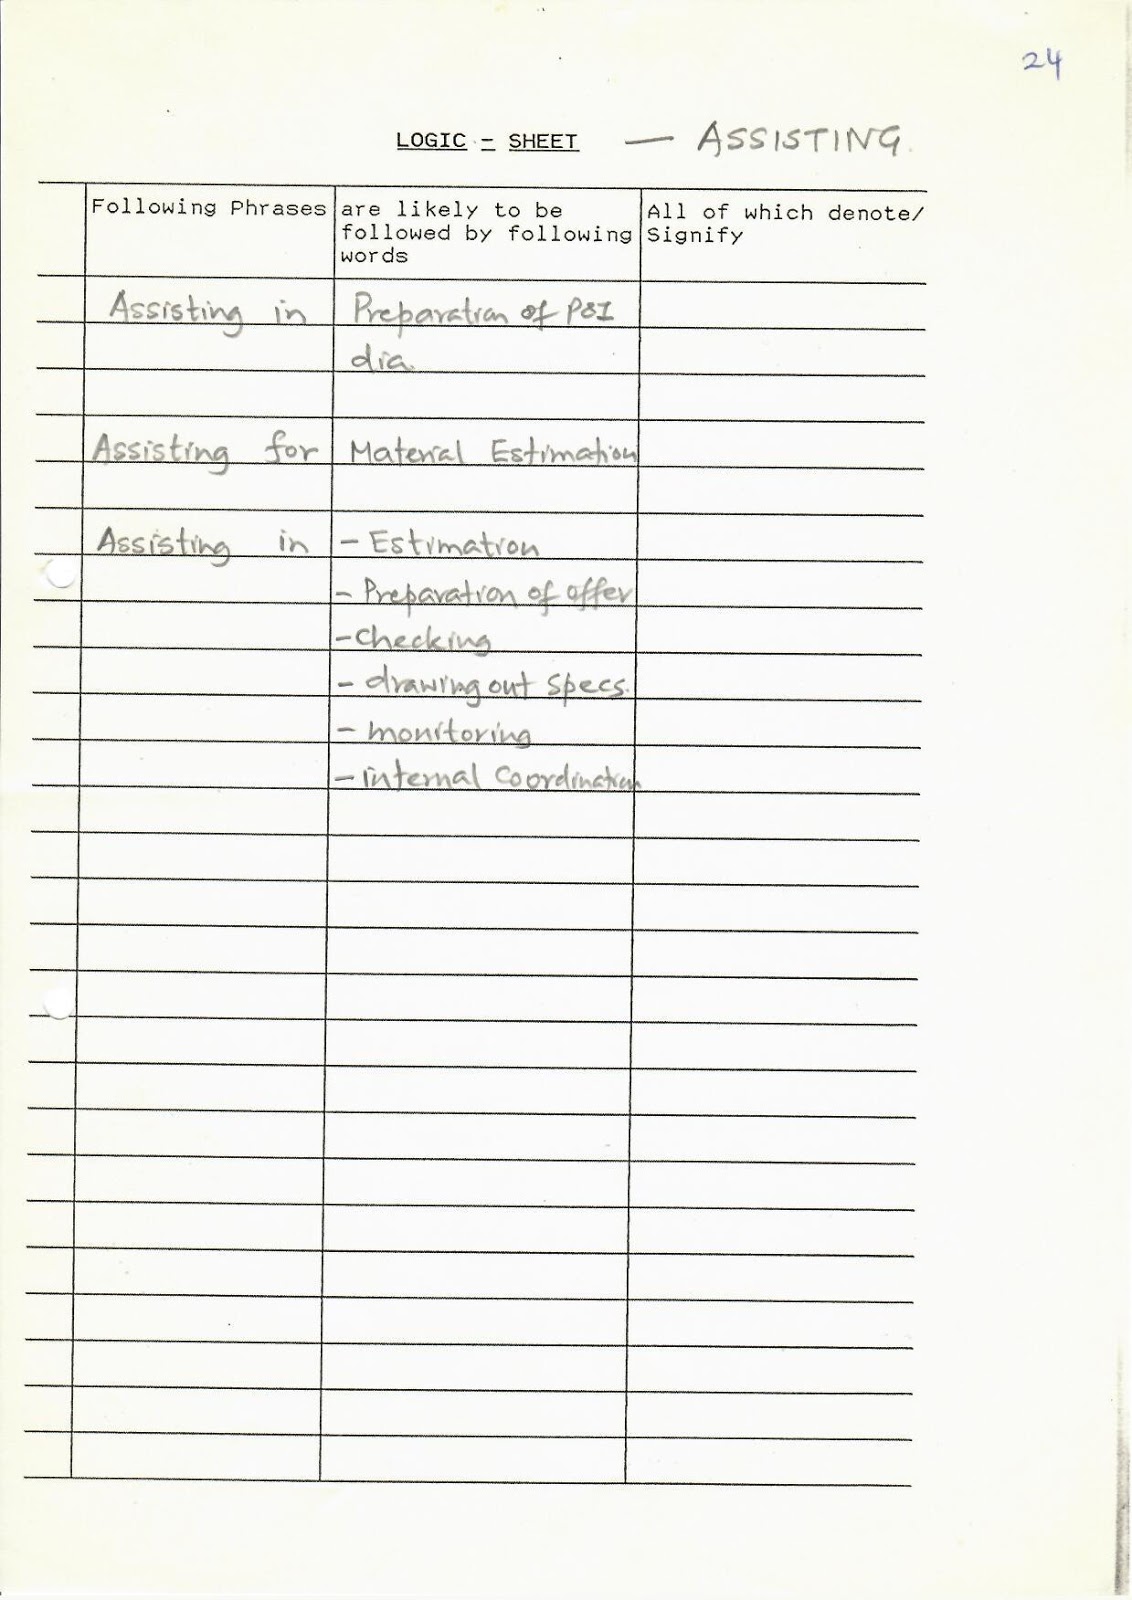 24
LOGIC - SHEET — ASSISTING.
Following Phrases are likely to be All of which denote/
followed by following Signify
words
Assisting in Preparation of P&I
dia.
Assisting for Material Estimation
Assisting in - Estimation
- Preparation of offer
- checking
- drawing out specs.
- monitoring
- internal coordination